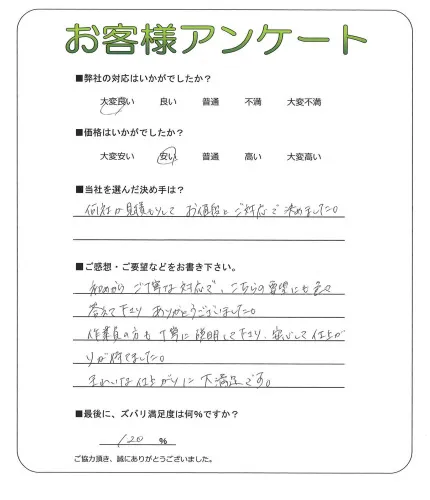 お客様アンケート
■弊社の対応はいかがでしたか？
大変良い 良い 普通 不満 大変不満
■価格はいかがでしたか？
大変安い 安い 普通 高い 大変高い
■当社を選んだ決め手は？
何社か見積もりして お値段と ご対応で 決めました。
■ご感想・ご要望などをお書き下さい。
初めから ご丁寧な対応で、こちらの要望にも
答えて下さり ありがとうございました。
作業員の方も 丁寧に 説明して下さり、安心して 仕上が
りが 待てました。
きれいな 仕上がりに 大満足です。
■最後に、ズバリ満足度は何％ですか？
120 ％
ご協力頂き、誠にありがとうございました。